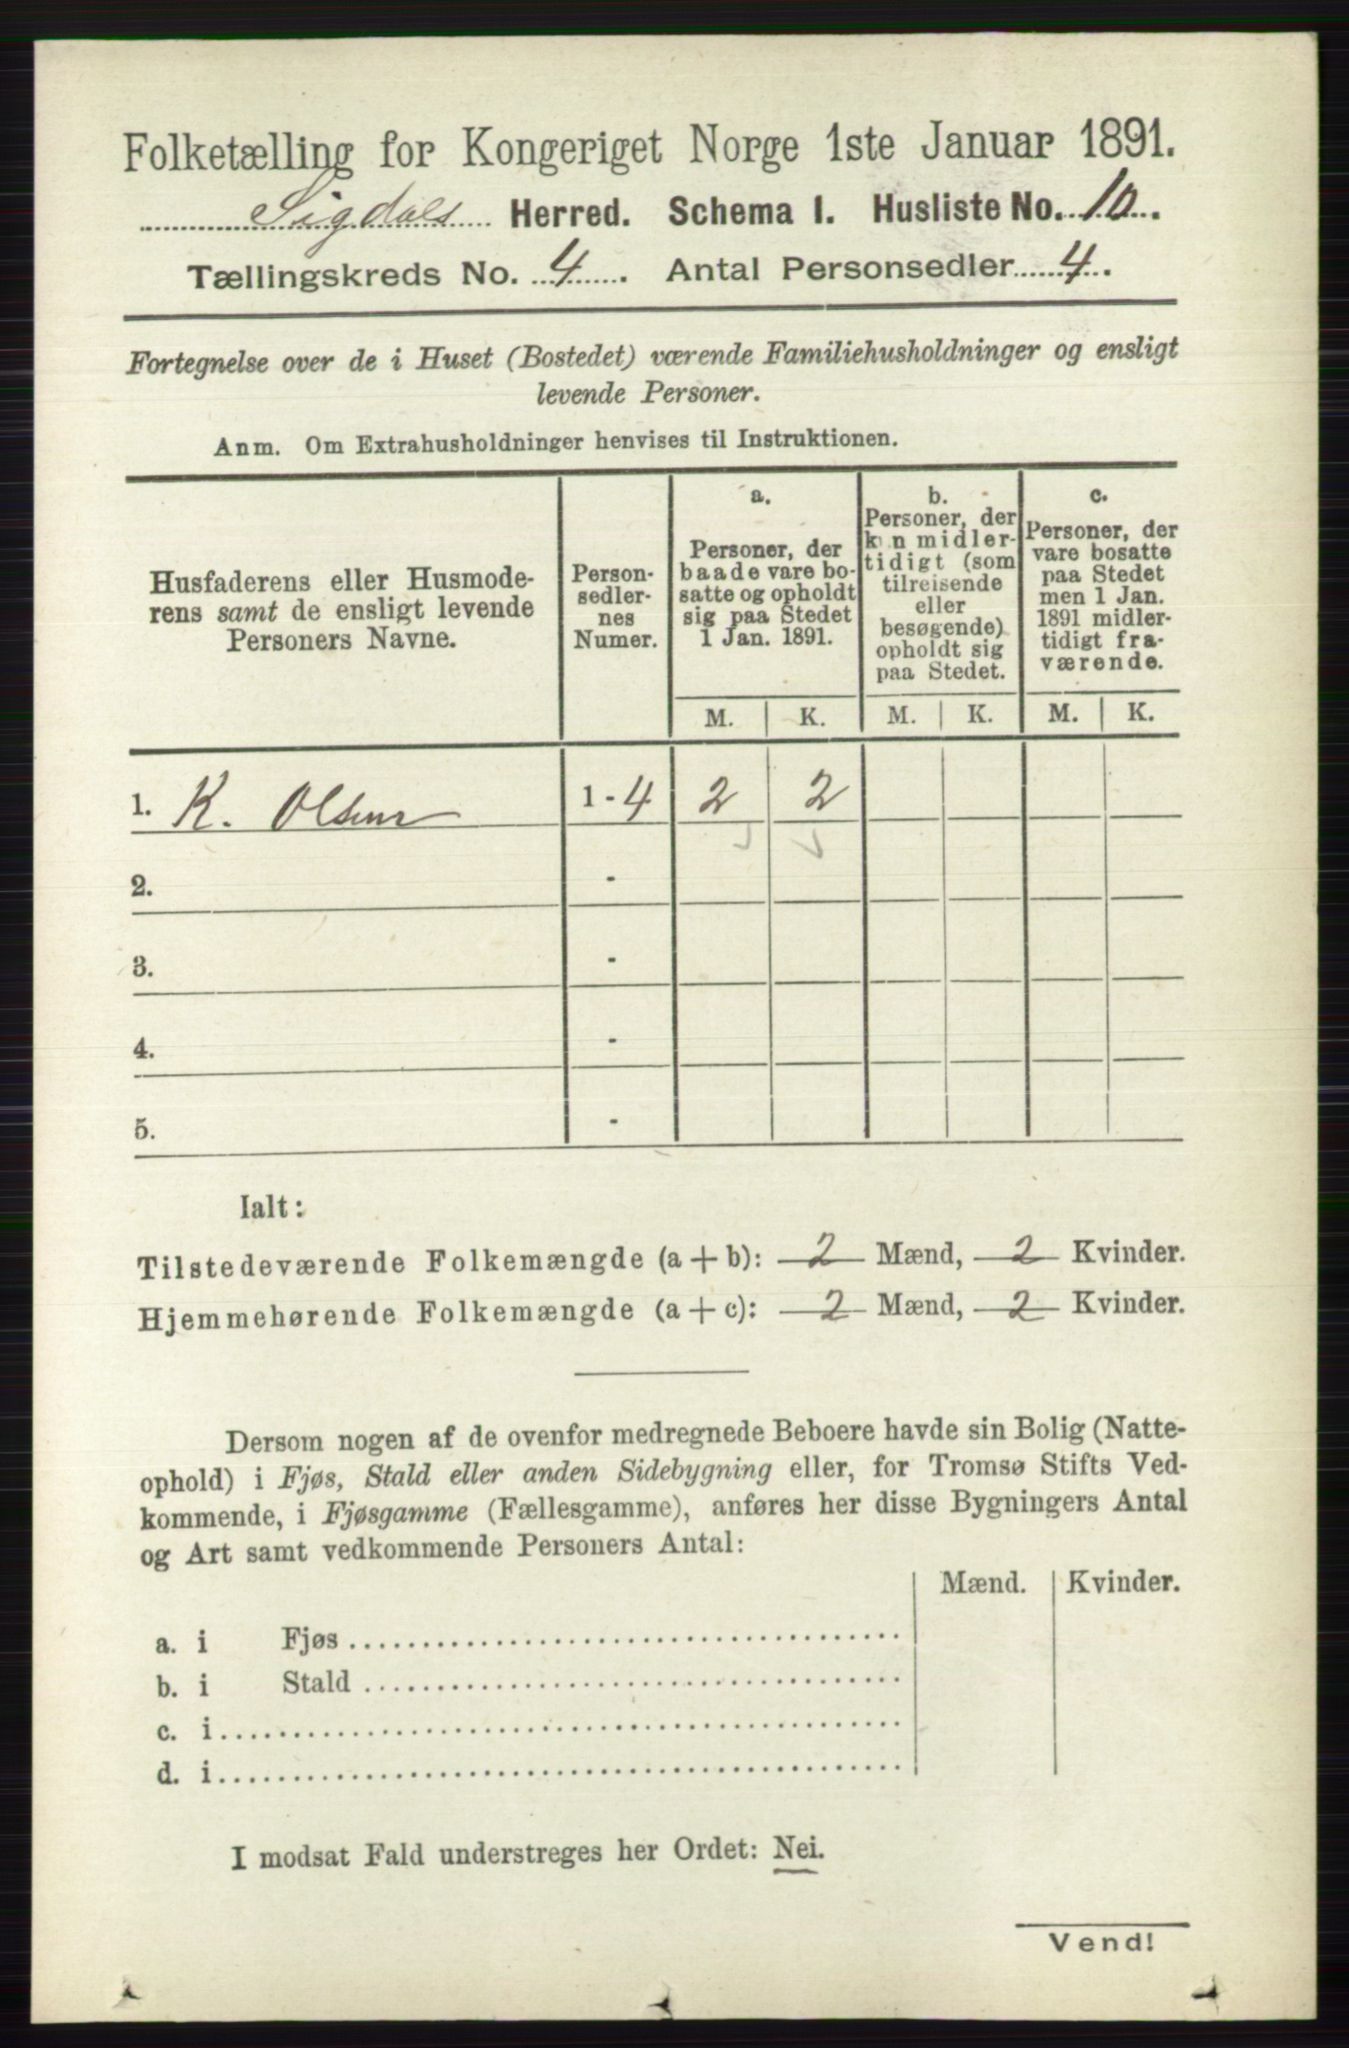 Folketælling for Kongeriget Norge 1ste Januar 1891.
Sigdals Herred. Schema 1. Husliste No. 10.
Tællingskreds No. 4. Antal Personsedler 4.
Fortegnelse over de i Huset (Bostedet) værende Familiehusholdninger og ensligt
levende Personer.
Anm. Om Extrahusholdninger henvises til Instruktionen.
Husfaderens eller Husmode-
rens samt de ensligt levende
Personers Navne.
Person-
sedler-
nes
Numer.
a.
Personer, der
baade vare bo-
satte og opholdt
sig paa Stedet
1 Jan. 1891.
b.
Personer, der
kun midler-
tidigt (som
tilreisende
eller
besøgende)
opholdt sig
paa Stedet.
c.
Personer, der
vare bosatte
paa Stedet
men 1 Jan.
1891 midler-
tidigt fra-
værende.
M. K. M. K. M. K.
1. K. Olsen 1 - 4 2 2
2. -
3. -
4. -
5. -
Ialt:
Tilstedeværende Folkemængde (a + b): 2 Mænd, 2 Kvinder.
Hjemmehørende Folkemængde (a + c): 2 Mænd, 2 Kvinder.
Dersom nogen af de ovenfor medregnede Beboere havde sin Bolig (Natte-
ophold) i Fjøs, Stald eller anden Sidebygning eller, for Tromsø Stifts Ved-
kommende, i Fjøsgamme (Fællesgamme), anføres her disse Bygningers Antal
og Art samt vedkommende Personers Antal:
Mænd. Kvinder.
a. i Fjøs
b. i Stald
c. i
d. i
I modsat Fald understreges her Ordet: Nei.
Vend!